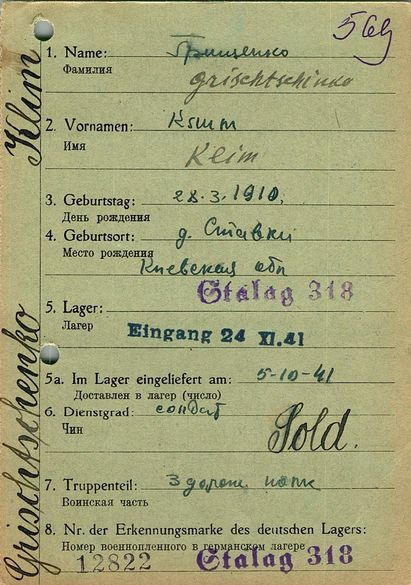 569
1. Name: Грищенко
Фамилия
Grischtschinko
2. Vornamen: Клим
Имя
Klim
3. Geburtstag: 28.3.1910.
День рождения
4. Geburtsort: д. Ставки
Место рождения
Киевская обл
Stalag 318
5. Lager:
Лагер
Eingang 24 XI.41
5a. Im Lager eingeliefert am: 5-10-41
Доставлен в лагер (число)
6. Dienstgrad: солдат
Чин
Sold.
7. Truppenteil: полк
Воинская часть
8. Nr. der Erkennungsmarke des deutschen Lagers:
Номер военнопленного в германском лагере
12822 Stalag 318
Grischtschenko Klim